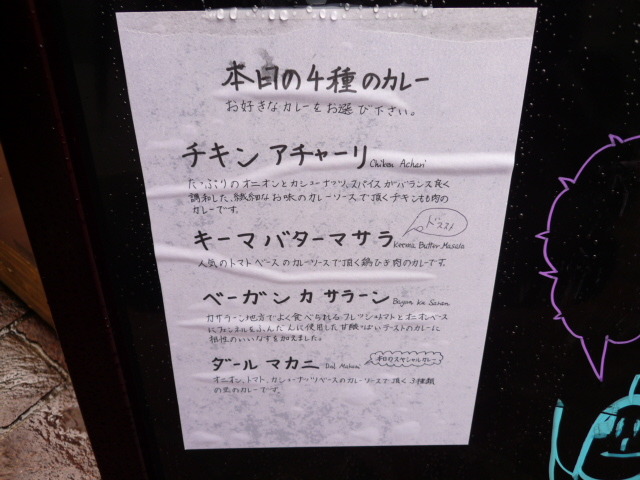 本日の4種のカレー
お好きなカレーをお選び下さい。
チキン アチャーリ Chiken Achari
たっぷりのオニオンとカシューナッツ、スパイスがバランス良く
調和した、繊細なお味のカレーソースで頂くチキンもも肉の
カレーです。
ドススメ
キーマ バターマサラ Keema Butter Masala
人気のトマトベースのカレーソースで頂く鶏ひき肉のカレーです。
ベーガン カ サラーン
地方でよく食べられるフレッシュトマトとオニオンベース
にフェンネルをふんだんに使用した甘酸っぱいテーストのカレーに
相性のいいなすを加えました。
本日のスペシャルカレー
ダール マカニ Dal Makani
オニオン、トマト、カシューナッツベースのカレーソースで頂く3種類
の豆のカレーです。